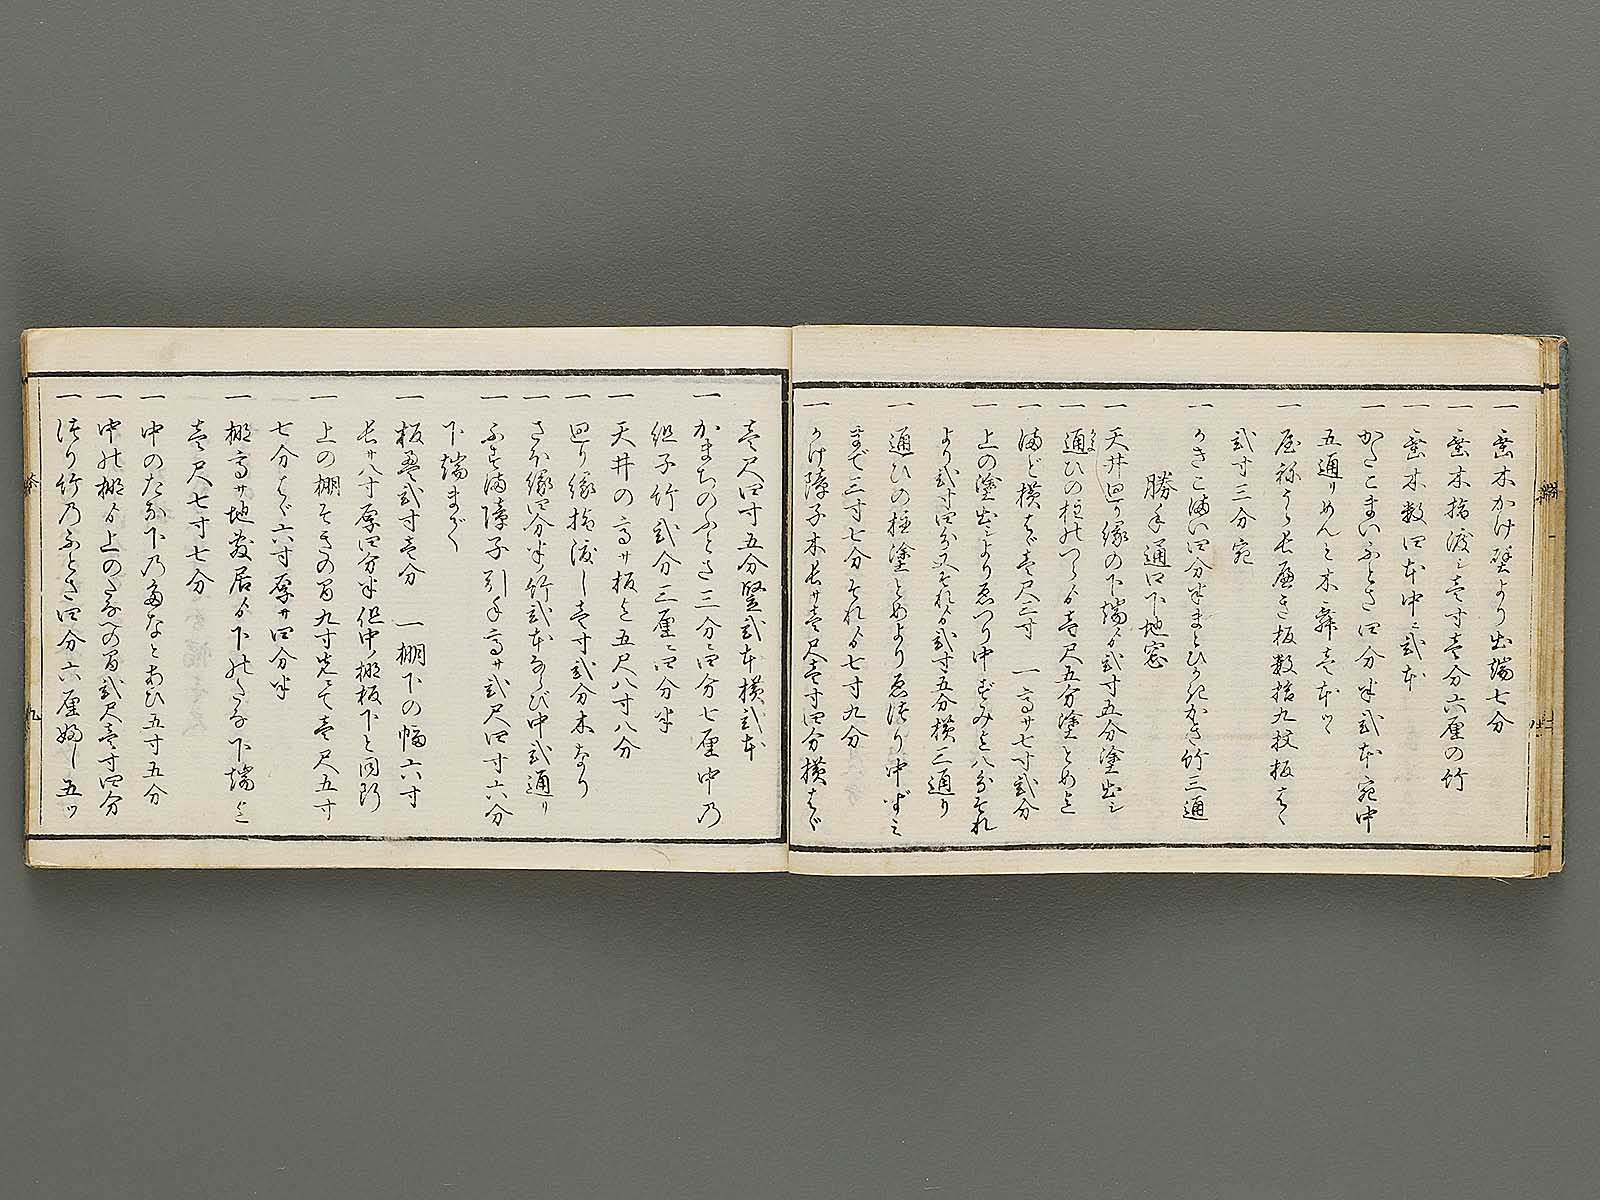 一 垂木かけ壁より出端七分
一 垂木揔渡シ壱寸壱分六厘の竹
一 垂木数四本中ニ弐本
一 かたこまいふとさ四分半弐本宛中
五通りめんと木舞壱本ツヽ
一 屋祢うら長へき板数拾九枚板はゝ
弐寸三分宛
一 かきこまい四分半まとひかきかき竹三通
勝手通口下地窓
一 天井廻り縁の下端ゟ弐寸五分塗出シ
一 通ひの柱のつらゟ壱尺五分塗とめと
一 まど横はゞ壱尺三寸 一 高サ七寸弐分
一 上の塗出シよりゑつり中ずみと八分それ
より弐寸四分又それゟ弐寸五分横三通り
一 通ひの柱塗とめよりゑつり中ずミ
まで三寸七分それゟ七寸九分
一 かけ障子木長サ壱尺壱寸四分横はゞ
壱尺四寸五分竪弐本横弐本
一 かまちのふとさ三分ニ四分七厘中乃
組子竹弐分三厘ニ四分半
一 天井の高サ板と五尺八寸八分
一 廻り縁揔渡し壱寸弐分木なり
一 さほ縁四分半竹弐本ならび中弐通リ
一 ふすま障子引手高サ弐尺四寸六分
下端まで
一 板畳弐寸壱分 一 棚下の幅六寸
長サ八寸厚四分半但中棚板下と同断
一 上の棚そきの間九寸先にて壱尺五寸
七分はゞ六寸厚サ四分半
一 棚高サ地敷居ゟ下のたな下端と
壱尺七寸七分
一 中のたな下乃たなとあひ五寸五分
一 中の棚ゟ上のたなの間弐尺壱寸四分
一 つり竹乃ふとさ四分六厘ふし五ツ